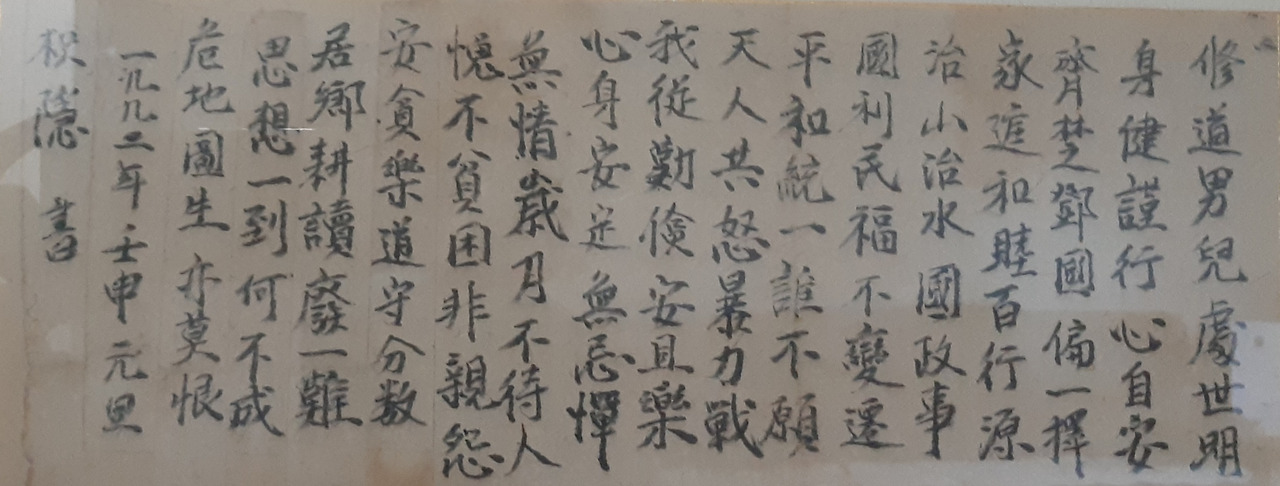 修道男兒處世明
身健謹行心自安
齊楚鄧國偏一擇
家進和睦百行源
治山治水國政事
國利民福不變遷
平和統一誰不願
天人共怒暴力戰
我從勤儉安且樂
心身安定無忌憚
無情歲月不待人
愧不貧困非親怨
安貧樂道守分數
居鄉耕讀廢一難
思想一到何不成
危地圖生亦莫恨
一九九二年壬申元旦
隱 書